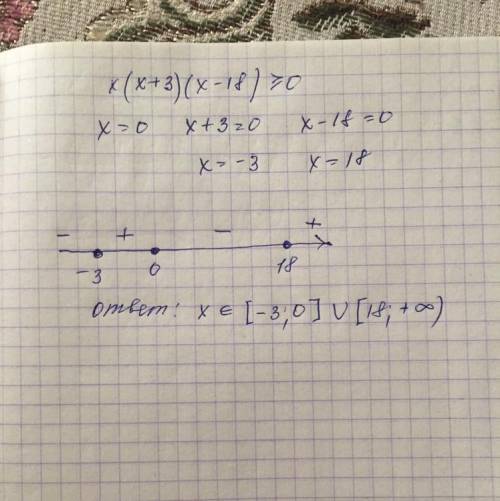 x(x+3)(x-18)≥0
x=0 x+3=0 x-18=0
x=-3 x=18
- + - +
-3 0 18
Ответ: x ∈ [-3;0] ∪ [18; +∞)